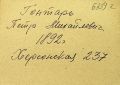 Гонтарь
Петр Михайлович
1892.
Херсонская 237